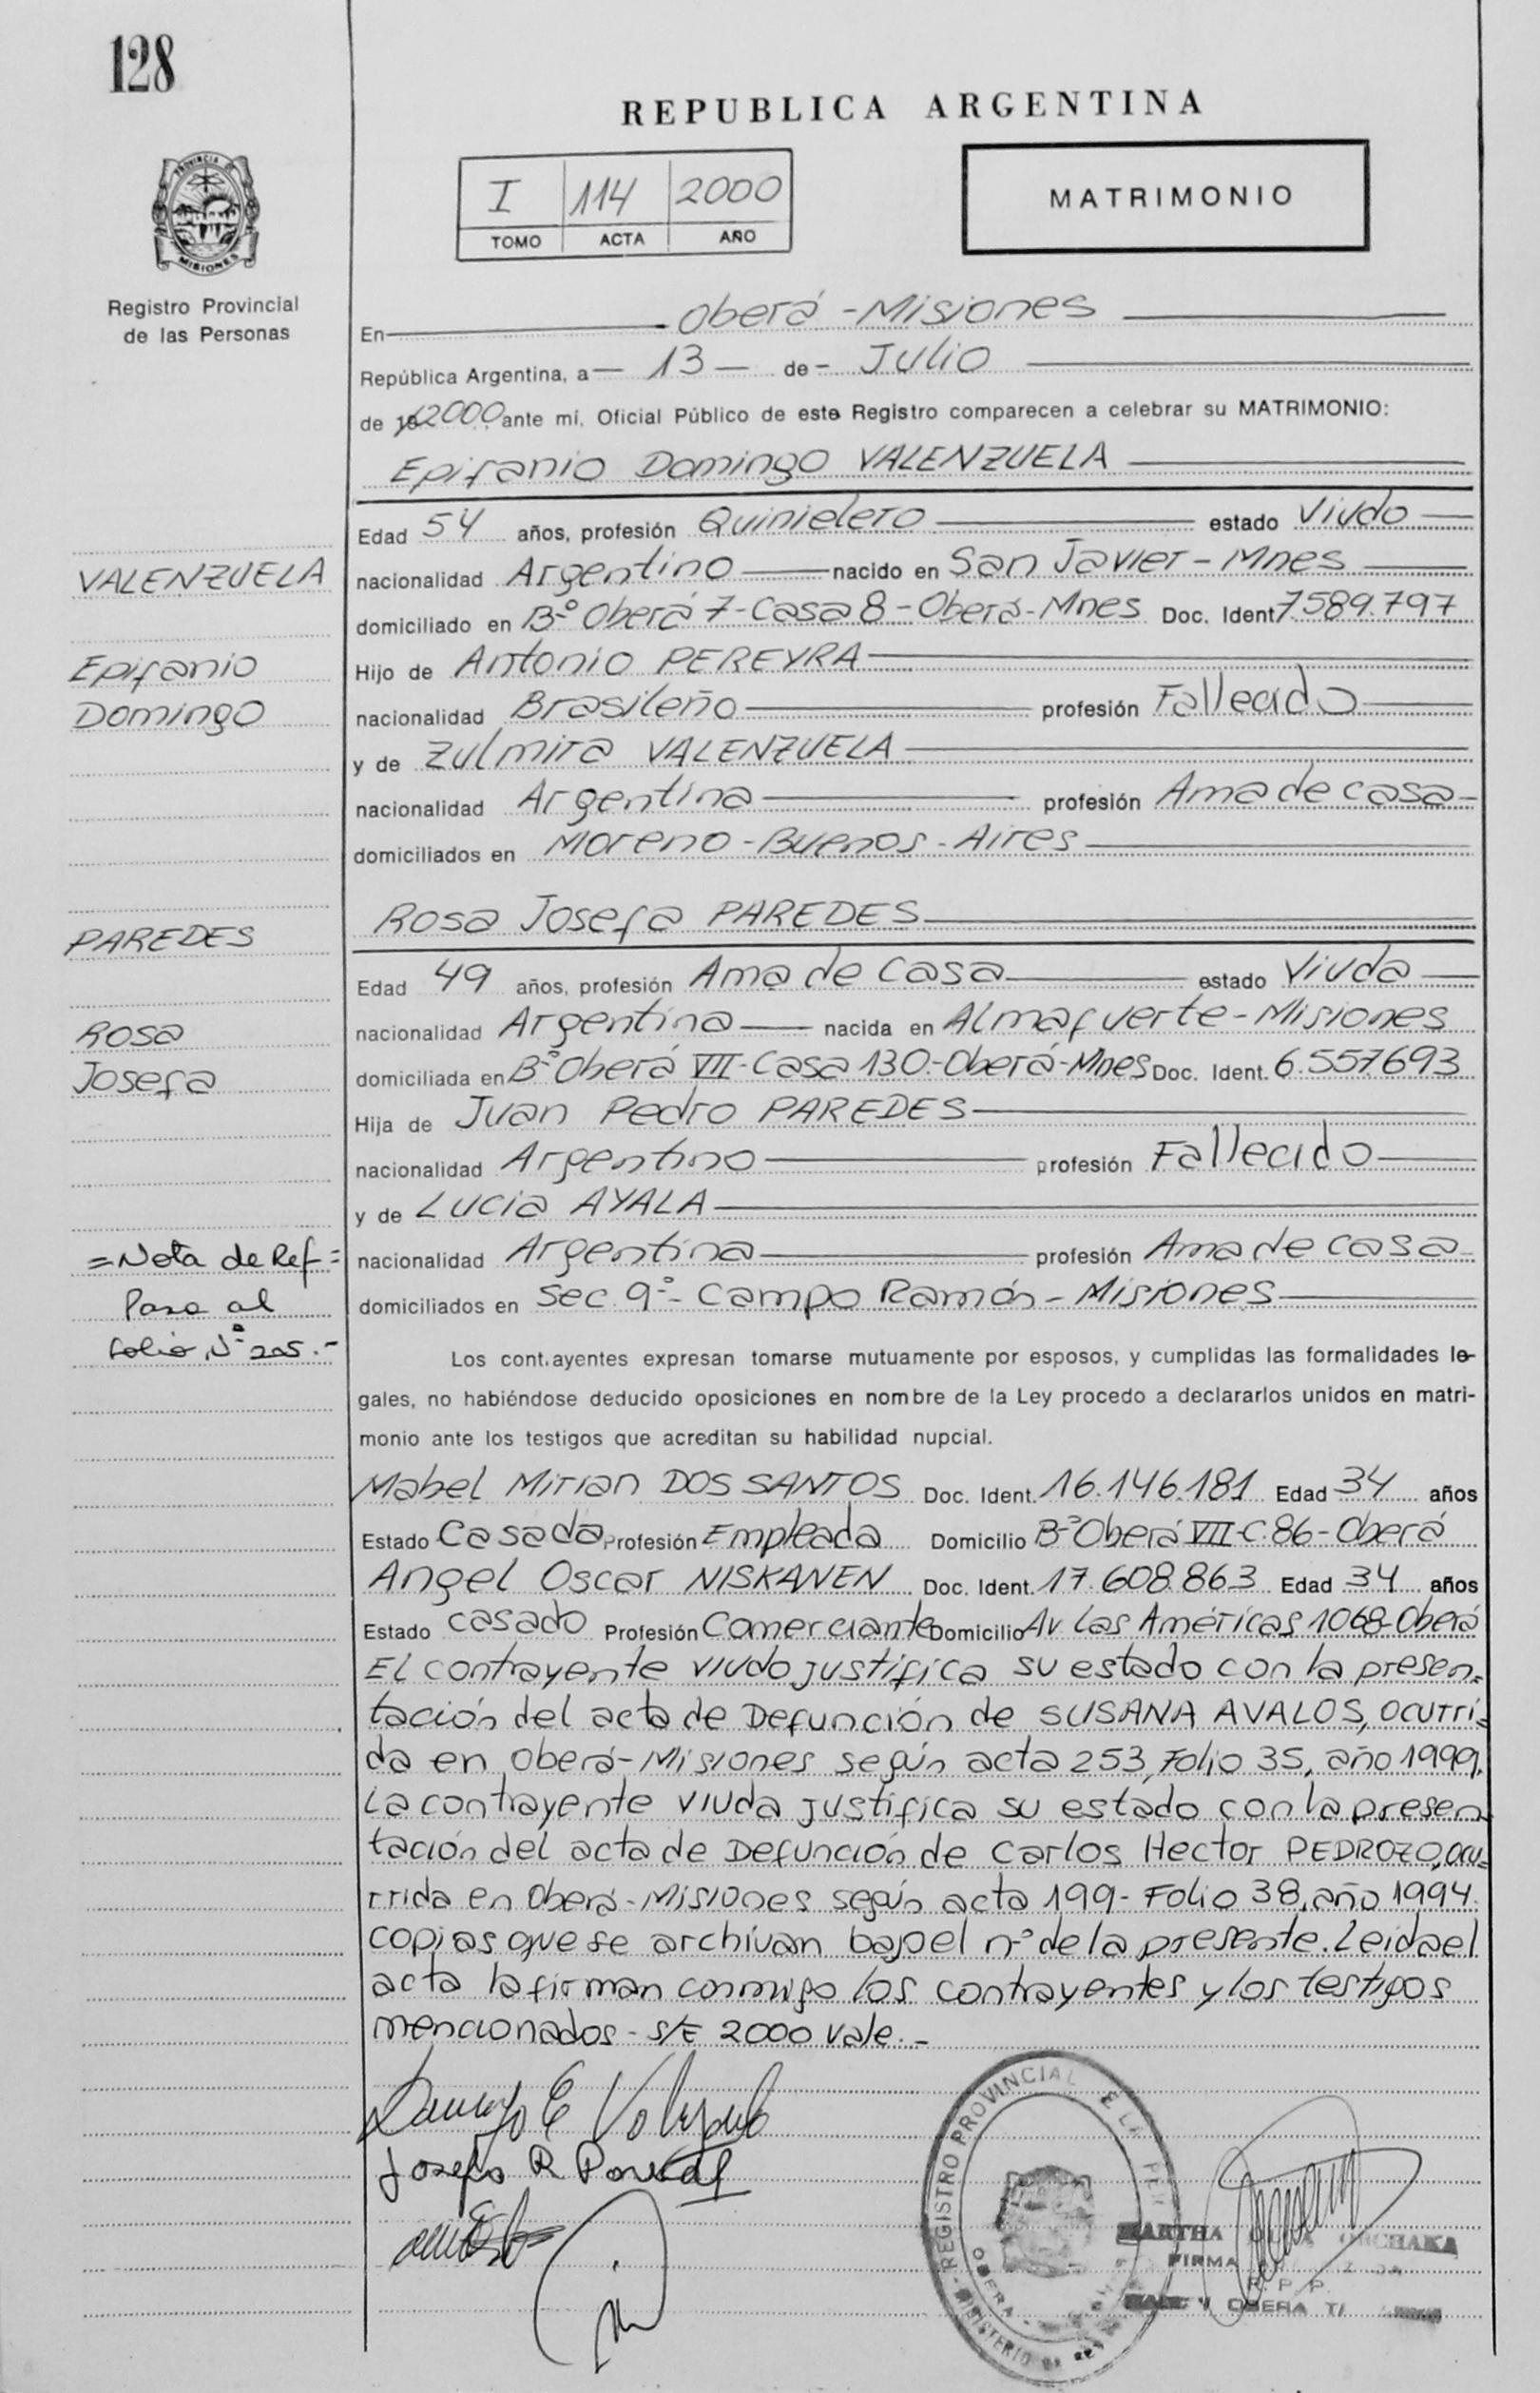 128
REPUBLICA ARGENTINA
I 114 2000
TOMO ACTA AÑO
MATRIMONIO
PROVINCIA DE
MISIONES
Registro Provincial
de las Personas
En Oberá - Misiones
República Argentina, a 13 de Julio
de 19 2000 ante mí, Oficial Público de este Registro comparecen a celebrar su MATRIMONIO:
Epifanio Domingo VALENZUELA
Edad 54 años, profesión Quinielero estado Viudo
VALENZUELA
nacionalidad Argentino nacido en San Javier - Mnes
domiciliado en Bº Oberá 7 - Casa 8 - Oberá - Mnes Doc. Ident 7.589.797
Epifanio
Hijo de Antonio PEREYRA
Domingo
nacionalidad Brasileño profesión Fallecido
y de Zulmira VALENZUELA
nacionalidad Argentina profesión Ama de casa
domiciliados en Moreno - Buenos - Aires
PAREDES
Rosa Josefa PAREDES
Edad 49 años, profesión Ama de Casa estado Viuda
Rosa
nacionalidad Argentina nacida en Almafuerte - Misiones
Josefa
domiciliada en Bº Oberá VII - Casa 130 - Oberá - Mnes Doc. Ident. 6.557693
Hija de Juan Pedro PAREDES
nacionalidad Argentino profesión Fallecido
y de Lucia AYALA
= Nota de Ref =
nacionalidad Argentina profesión Ama de casa
Pasa al
domiciliados en Sec. 9º - Campo Ramón - Misiones
folio Nº 205.-
Los cont.ayentes expresan tomarse mutuamente por esposos, y cumplidas las formalidades le-
gales, no habiéndose deducido oposiciones en nombre de la Ley procedo a declararlos unidos en matri-
monio ante los testigos que acreditan su habilidad nupcial.
Mabel Mirian DOS SANTOS Doc. Ident. 16.146.181 Edad 34 años
Estado Casada Profesión Empleada Domicilio Bº Oberá VII - C. 86 - Oberá
Angel Oscar NISKANEN Doc. Ident. 17.608.863 Edad 34 años
Estado casado Profesión Comerciante Domicilio Av. Las Américas 1068 - Oberá
El contrayente viudo justifica su estado con la presen-
tación del acta de Defunción de SUSANA AVALOS, ocurri-
da en Oberá - Misiones según acta 253, Folio 35, año 1999.
La contrayente viuda justifica su estado con la presen-
tación del acta de Defunción de Carlos Hector PEDROZO, ocu-
rrida en Oberá - Misiones según acta 199 - Folio 38, año 1994.
copias que se archivan bajo el nº de la presente. Leida el
acta la firman conmigo los contrayentes y los testigos
mencionados - S/E 2000 vale.-
REGISTRO PROVINCIAL
Josefa R
OBERA
MINISTERIO
MARTHA
FIRMA
R. P. P.
OBERA